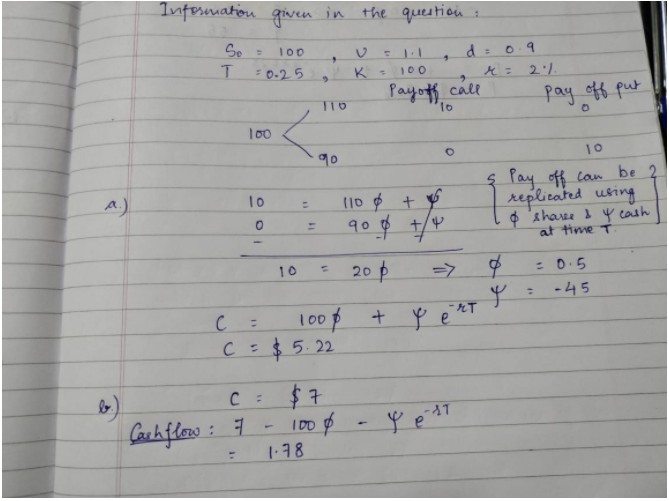 Information given in the question :
S₀ = 100 , U = 1.1 , d = 0.9
T = 0.25 , K = 100 , r = 2%
Payoff call Pay off put
110 10 0
100
90 0 10
a.) 10 = 110 ϕ + ψ { Pay off can be replicated using ϕ shares & ψ cash at time T. }
0 = 90 ϕ + ψ
- - -
10 = 20 ϕ => ϕ = 0.5
ψ = -45
C = 100 ϕ + ψ e^-rT
C = $ 5.22
b.) C = $ 7
Cashflow : 7 - 100 ϕ - ψ e^-rT
= 1.78